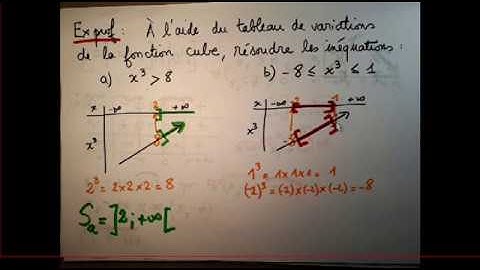 Ex prof : À l'aide du tableau de variations
de la fonction cube, résoudre les inéquations :
a) x³ > 8
b) -8 ≤ x³ ≤ 1
x -∞ 2 +∞
x³ 8
x -∞ -2 1 +∞
x³ -8 1
2³ = 2x2x2 = 8
1³ = 1x1x1 = 1
(-2)³ = (-2)x(-2)x(-2) = -8
Sa = ]2; +∞[